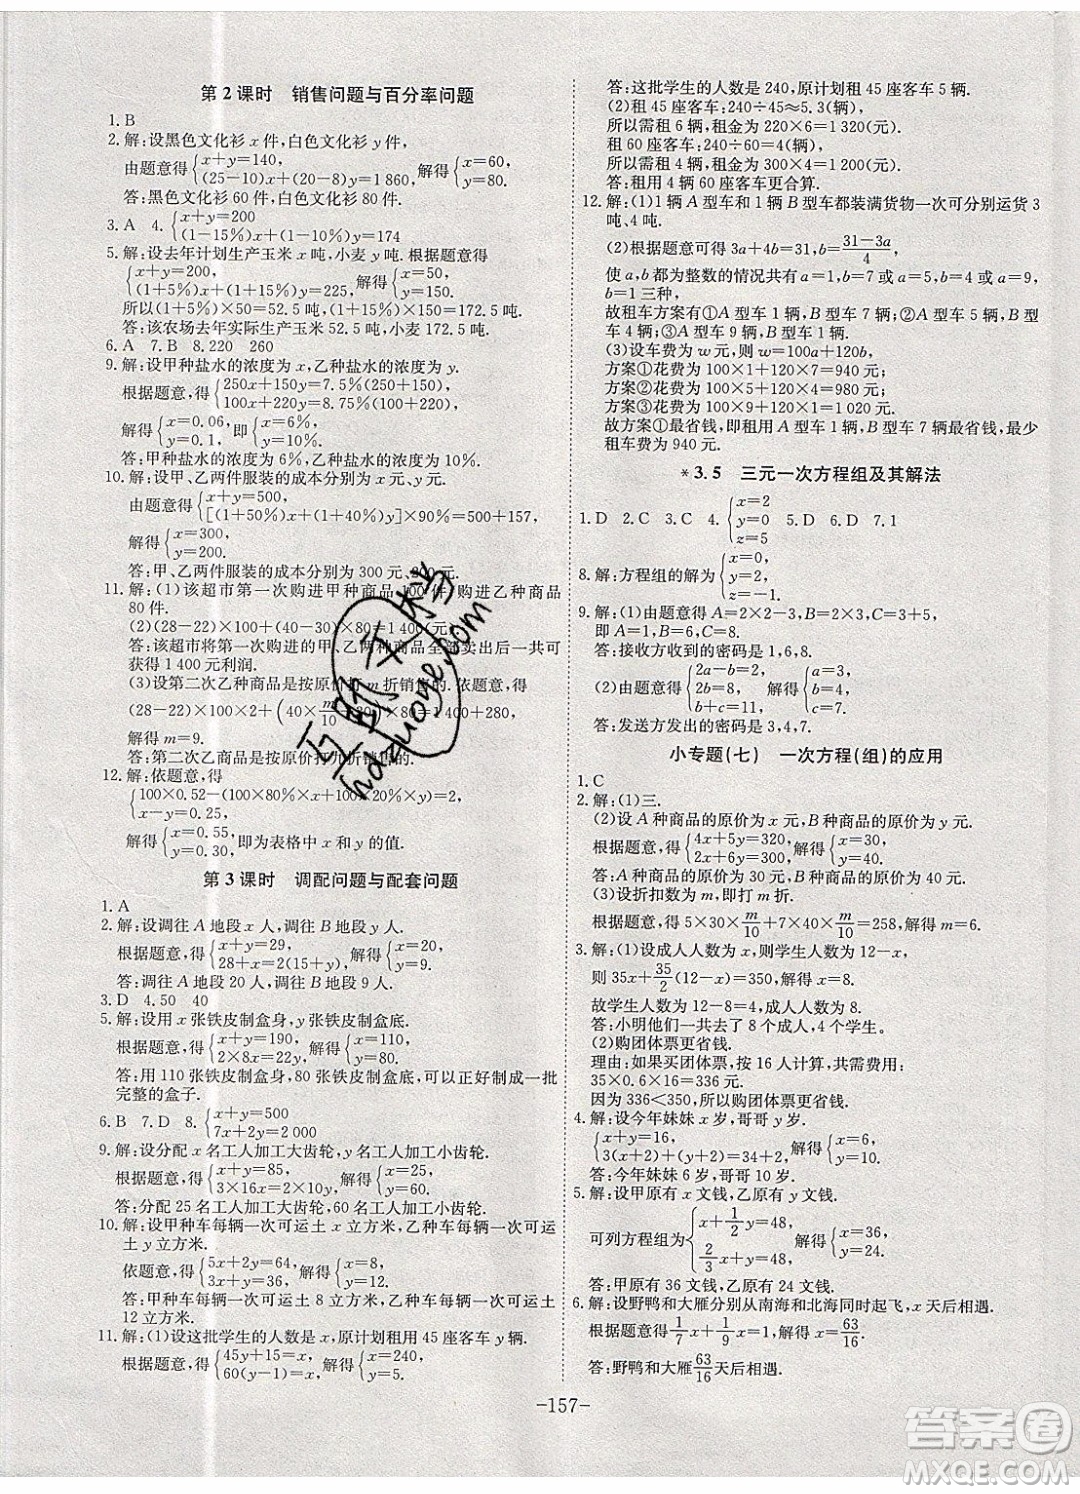 第2课时 销售问题与百分率问题
1. B
2. 解:设黑色文化衫 x 件,白色文化衫 y 件.
由题意得{x+y=140, (25-10)x+(20-8)y=1 860, 解得{x=60, y=80.
答:黑色文化衫 60 件,白色文化衫 80 件.
3. A 4. {x+y=200 (1-15%)x+(1-10%)y=174
5. 解:设去年计划生产玉米 x 吨,小麦 y 吨.
{x+y=200, (1+5%)x+(1+15%)y=225, 解得{x=50, y=150.
所以(1+5%)×50=52.5 吨,(1+15%)×150=172.5 吨.
答:该农场去年实际生产玉米 52.5 吨,小麦 172.5 吨.
6. A 7. B 8. 220 260
9. 解:设甲种盐水的浓度为 x,乙种盐水的浓度为 y.
根据题意,得{250x+150y=7.5%(250+150), 100x+220y=8.75%(100+220),
解得{x=0.06, y=0.1, 即{x=6%, y=10%.
答:甲种盐水的浓度为 6%,乙种盐水的浓度为 10%.
10. 解:设甲、乙两件服装的成本分别为 x 元、y 元.
由题意得{x+y=500, [(1+50%)x+(1+40%)y]×90%=500+157,
解得{x=300, y=200.
答:甲、乙两件服装的成本分别为 300 元、200 元.
11. 解:(1)该超市第一次购进甲种商品 100 件,购进乙种商品
80 件.
(2)(28-22)×100+(40-30)×80=1 400(元).
答:该超市将第一次购进的甲、乙两种商品全部卖出后一共可
获得 1 400 元利润.
(3)设第二次乙种商品是按原价打 m 折销售的. 依题意,得
(28-22)×100×2+(40×m/10-30)×80=1 400+280,
解得 m=9.
答:第二次乙种商品是按原价打九折销售的.
12. 解:依题意,得
{100×0.52-(100×150%-100)×y=2,
x-y=0.25,
解得{x=0.55, y=0.30, 即为表格中 x 和 y 的值.
第3课时 调配问题与配套问题
1. A
2. 解:设调往 A 地段 x 人,调往 B 地段 y 人.
根据题意,得{x+y=29, 28+x=2(15+y), 解得{x=20, y=9.
答:调往 A 地段 20 人,调往 B 地段 9 人.
3. D 4. 50 40
5. 解:设用 x 张铁皮制盒身,y 张铁皮制盒底.
根据题意,得{x+y=190, 2×8x=22y, 解得{x=110, y=80.
答:用 110 张铁皮制盒身,80 张铁皮制盒底,可以正好制成一批
完整的盒子.
6. B 7. D 8. {x+y=500 7x=2y=2 000
9. 解:设分配 x 名工人加工大齿轮,y 名工人加工小齿轮.
根据题意,得{x+y=85, 3×16x=2×10y, 解得{x=25, y=60.
答:分配 25 名工人加工大齿轮,60 名工人加工小齿轮.
10. 解:设甲种车每辆一次可运土 x 立方米,乙种车每辆一次可运
土 y 立方米.
依题意,得{5x+2y=64, 3x+y=36, 解得{x=8, y=12.
答:甲种车每辆一次可运土 8 立方米,乙种车每辆一次可运土
12 立方米.
11. 解:(1)设这批学生的人数是 x,原计划租用 45 座客车 y 辆.
根据题意,得{45y+15=x, 60(y-1)=x, 解得{x=240, y=5.
答:这批学生的人数是 240,原计划租 45 座客车 5 辆.
(2)租 45 座客车:240÷45≈5.3(辆),
所以需租 6 辆,租金为 220×6=1 320(元).
租 60 座客车:240÷60=4(辆),
所以需租 4 辆,租金为 300×4=1 200(元).
答:租用 4 辆 60 座客车更合算.
12. 解:(1)1 辆 A 型车和 1 辆 B 型车都装满货物一次可分别运货 3
吨、4 吨.
(2)根据题意可得 3a+4b=31,b=(31-3a)/4,
使 a,b 都为整数的情况共有 a=1,b=7 或 a=5,b=4 或 a=9,
b=1 三种,
故租车方案有①A 型车 1 辆,B 型车 7 辆;②A 型车 5 辆,B 型
车 4 辆;③A 型车 9 辆,B 型车 1 辆.
(3)设车费为 w 元,则 w=100a+120b,
方案①花费为 100×1+120×7=940 元;
方案②花费为 100×5+120×4=980 元;
方案③花费为 100×9+120×1=1 020 元.
故方案①最省钱,即租用 A 型车 1 辆,B 型车 7 辆最省钱,最少
租车费为 940 元.
*3.5 三元一次方程组及其解法
1. D 2. C 3. C 4. {x=2 y=0 z=5 5. D 6. D 7. 1
8. 解:方程组的解为{x=0, y=1, z=-1.
9. 解:(1)由题意得 A=2×2-3,B=2×3,C=3+5,
即 A=1,B=6,C=8.
答:接收方收到的密码是 1,6,8.
(2)由题意得{2a-b=2, 2b=8, b+c=11, 解得{a=3, b=4, c=7.
答:发送方发出的密码是 3,4,7.
小专题(七) 一次方程(组)的应用
1. C
2. 解:(1)三.
(2)设 A 种商品的原价为 x 元,B 种商品的原价为 y 元.
根据题意,得{4x+5y=320, 2x+6y=300, 解得{x=30, y=40.
答:A 种商品的原价为 30 元,B 种商品的原价为 40 元.
(3)设折扣数为 m,即打 m 折.
根据题意,得 5×30×m/10+7×40×m/10=258,解得 m=6.
3. 解:(1)设成人人数为 x,则学生人数为 12-x,
则 35x+35/2(12-x)=350,解得 x=8.
故学生人数为 12-8=4,成人人数为 8.
答:小明他们一共去了 8 个成人,4 个学生.
(2)购团体票更省钱.
理由:如果买团体票,按 16 人计算,共需费用:
35×0.6×16=336 元.
因为 336<350,所以购团体票更省钱.
4. 解:设今年妹妹 x 岁,哥哥 y 岁.
{x+y=16, 3(x+2)+(y+2)=34+2, 解得{x=6, y=10.
答:今年妹妹 6 岁,哥哥 10 岁.
5. 解:设甲原有 x 文钱,乙原有 y 文钱.
可列方程组为{x+1/2y=48, 2/3x+y=48, 解得{x=36, y=24.
答:甲原有 36 文钱,乙原有 24 文钱.
6. 解:设野鸭和大雁分别从南海和北海同时起飞,x 天后相遇.
根据题意得 1/7x+1/9x=1,解得 x=63/16.
答:野鸭和大雁 63/16 天后相遇.
-157-
答案圈
MXQE.COM